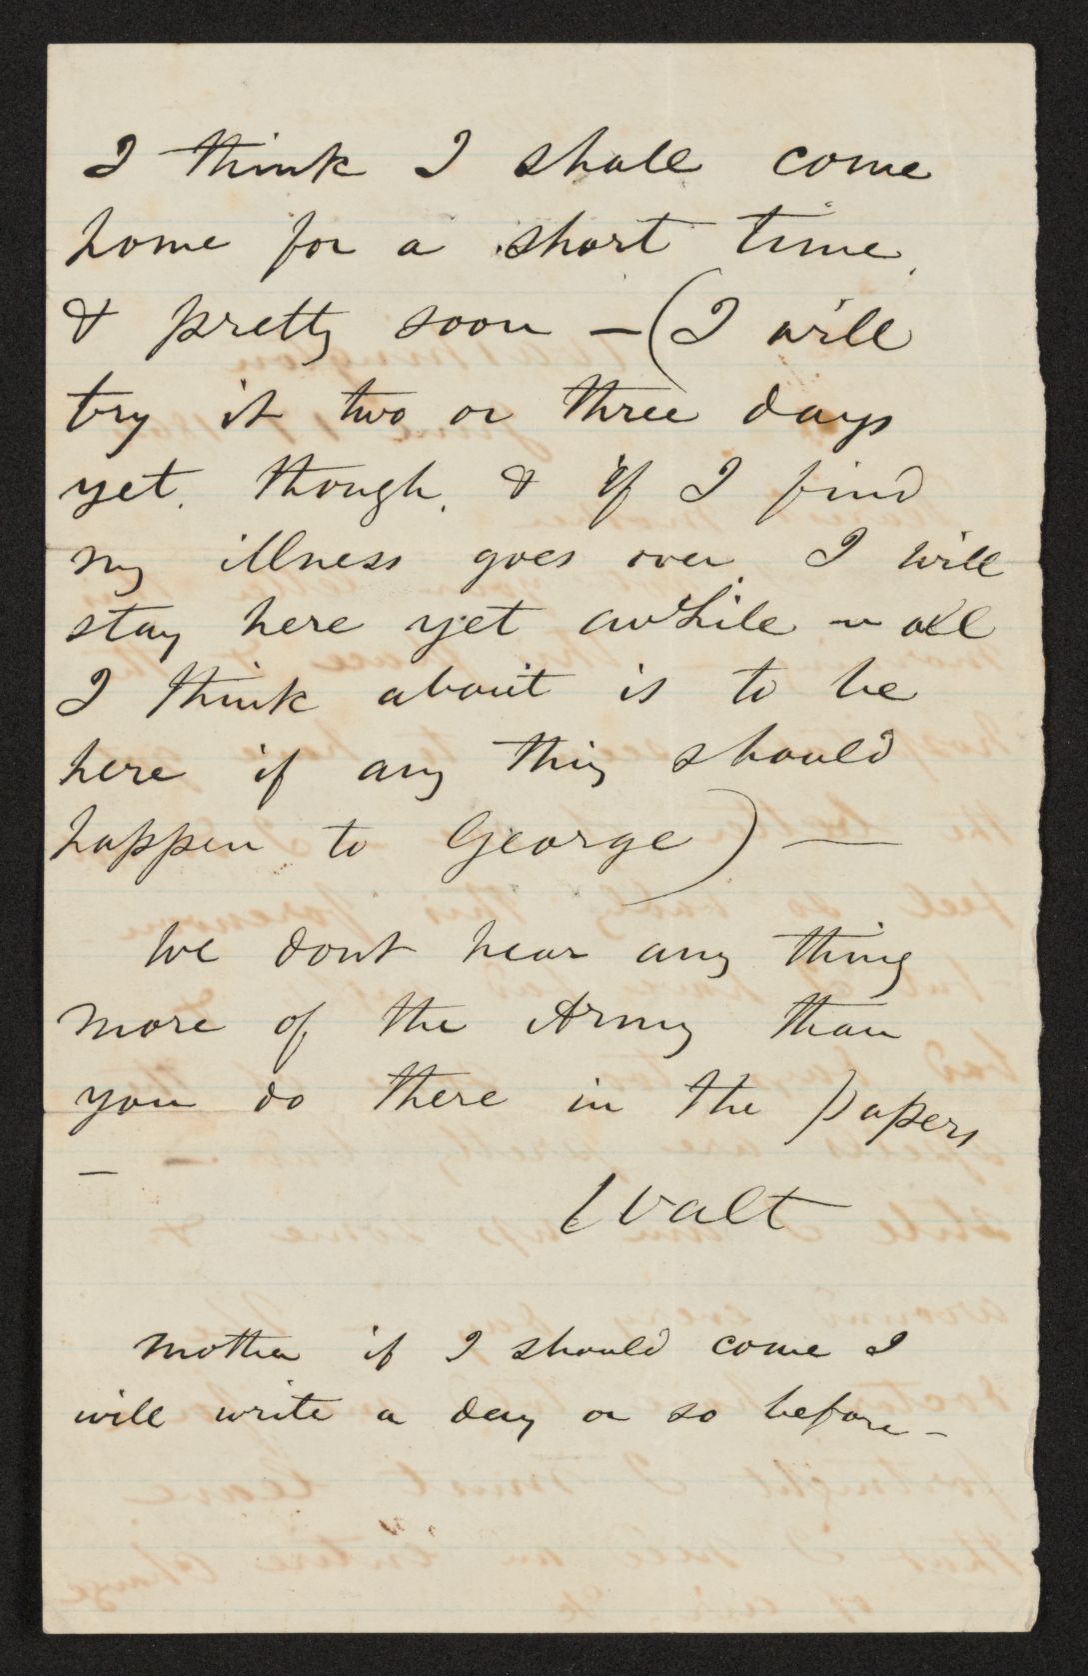 I think I shall come
home for a short time,
& pretty soon — (I will
try it two or three days
yet, though, & if I find
my illness goes over I will
stay here yet awhile — all
I think about is to be
here if any thing should
happen to George) —
We dont hear any thing
more of the Army than
you do there in the papers
—
Walt
Mother if I should come I
will write a day or so before —